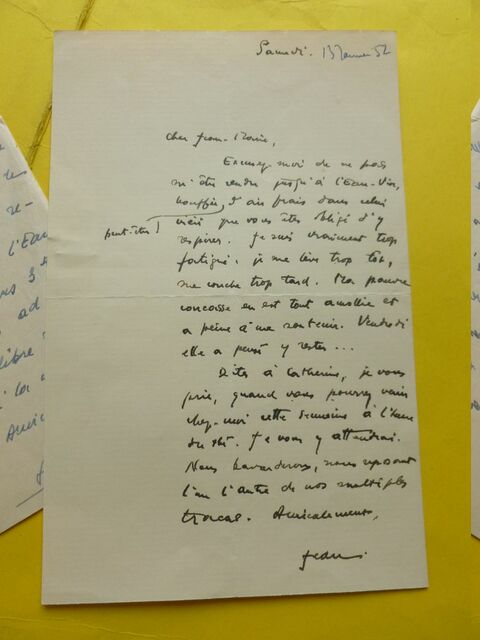 Samedi. 13 Janvier 52
Cher Jean-Marie,
Excusez-moi de ne pas
m'être rendu jusqu'à l'Eau-Vive,
bouffée d'air frais dans celui
peut-être !
vicié que vous êtes obligé d'y
respirer. Je suis vraiment trop
fatigué. je me lève trop tôt,
me couche trop tard. Ma pauvre
carcasse en est tout amollie et
a peine à me soutenir. Vendredi
elle a pensé y rester...
Dites à Catherine, je vous
prie, quand vous pourrez venir
chez-moi cette semaine à l'heure
du thé. Je vous y attendrai.
Nous bavarderons, nous reposant
l'un l'autre de nos multiples
tracas. Amicalement,
Jean
des
re-
l'Eau
ad
libre
la
Amic